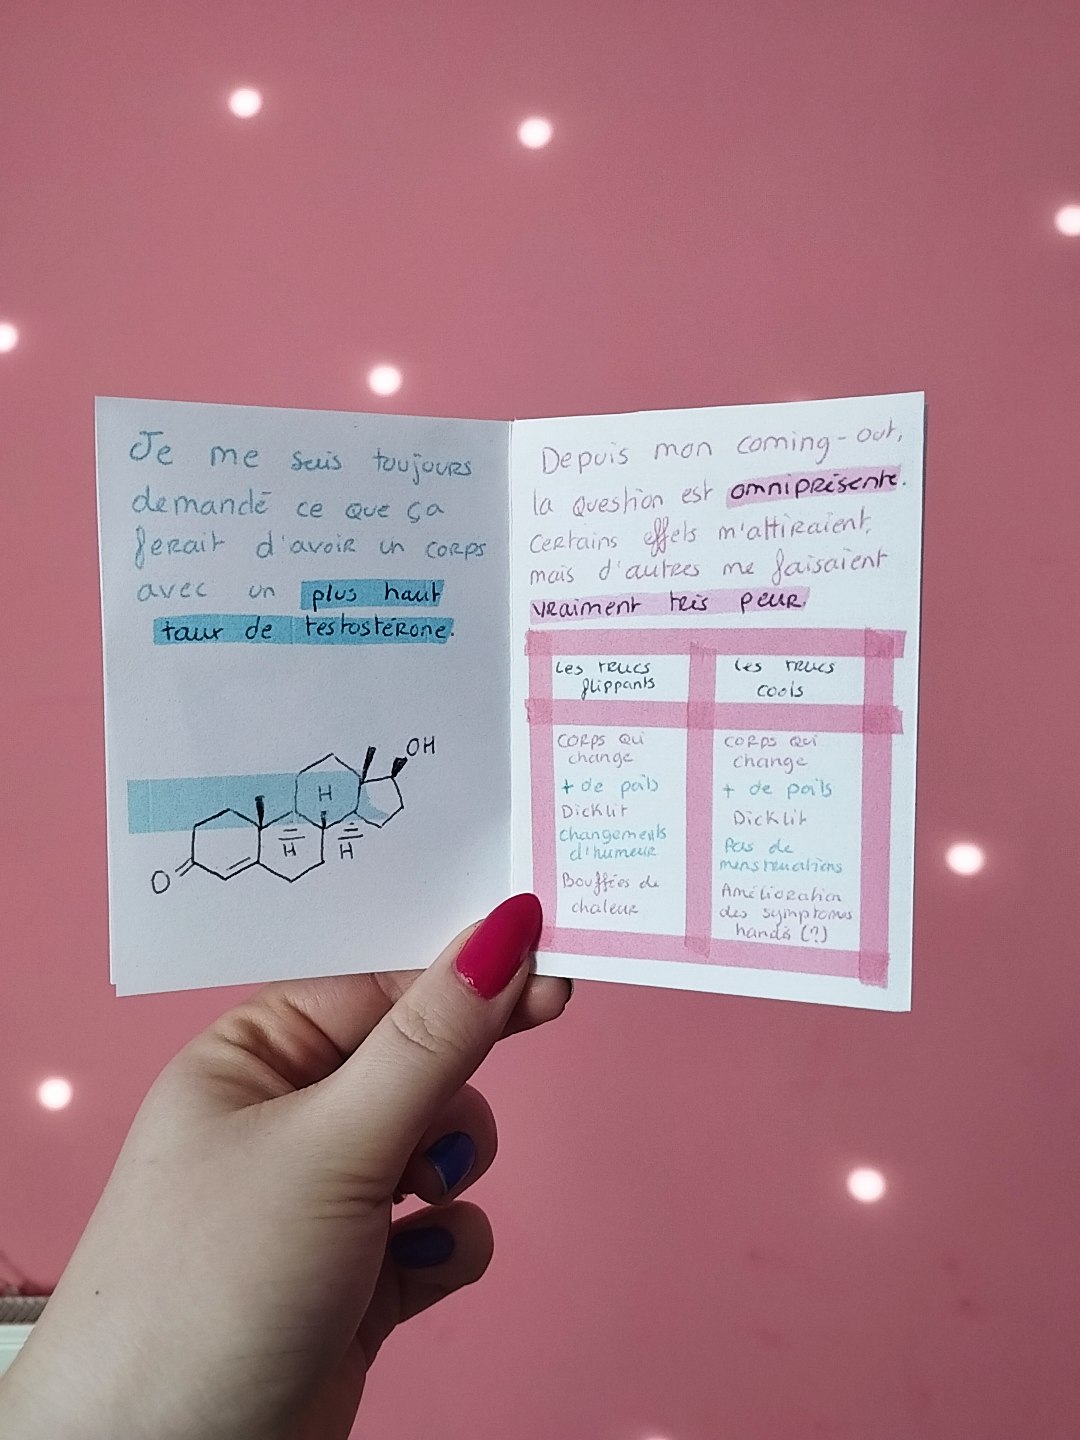 Je me suis toujours
demandé ce que ça
ferait d'avoir un corps
avec un plus haut
taux de testostérone.
OH
H
H
H
O
Depuis mon coming-out,
la question est omniprésente.
Certains effets m'attiraient,
mais d'autres me faisaient
vraiment très peur.
Les trucs
flippants
Les trucs
cools
Corps qui
change
+ de poils
Dicklit
changements
d'humeur
Bouffées de
chaleur
Corps qui
change
+ de poils
Dicklit
Pas de
menstruations
Amélioration
des symptomes
handis (?)